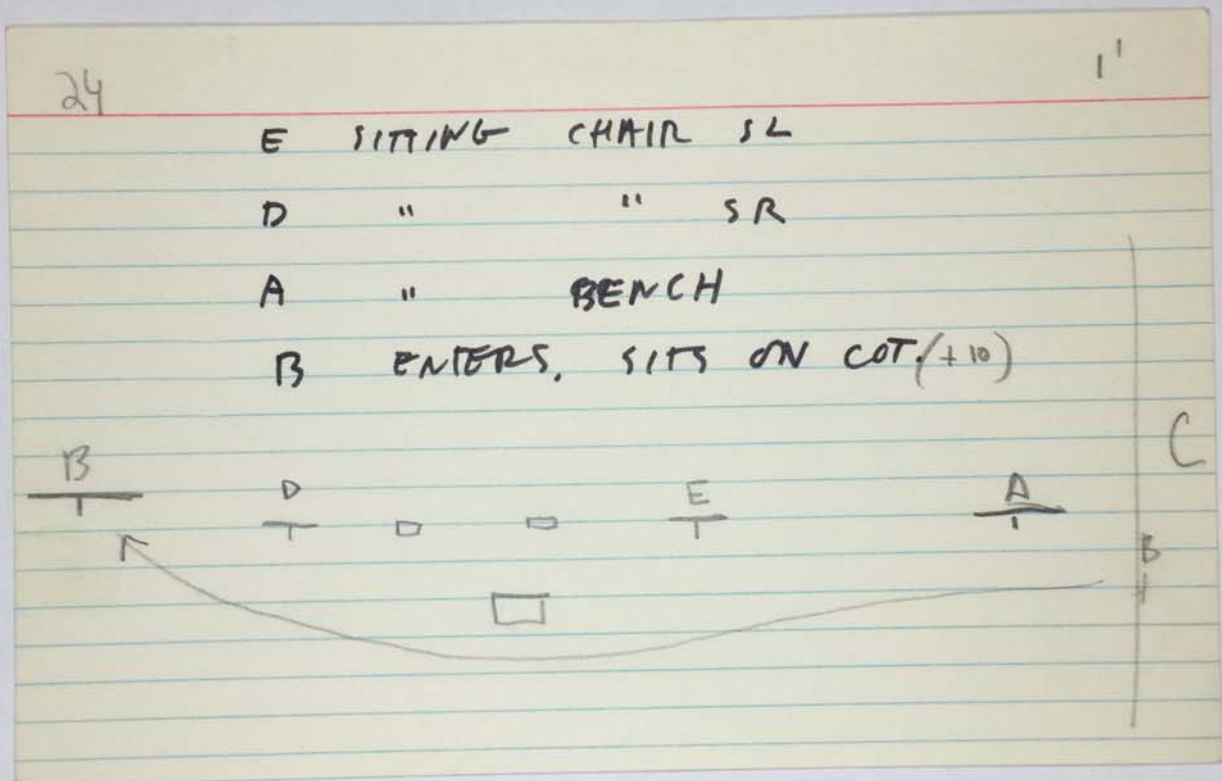 24 1'
E SITTING CHAIR SL
D " " SR
A " BENCH
B ENTERS, SITS ON COT. (+10)
C
B D E A
B